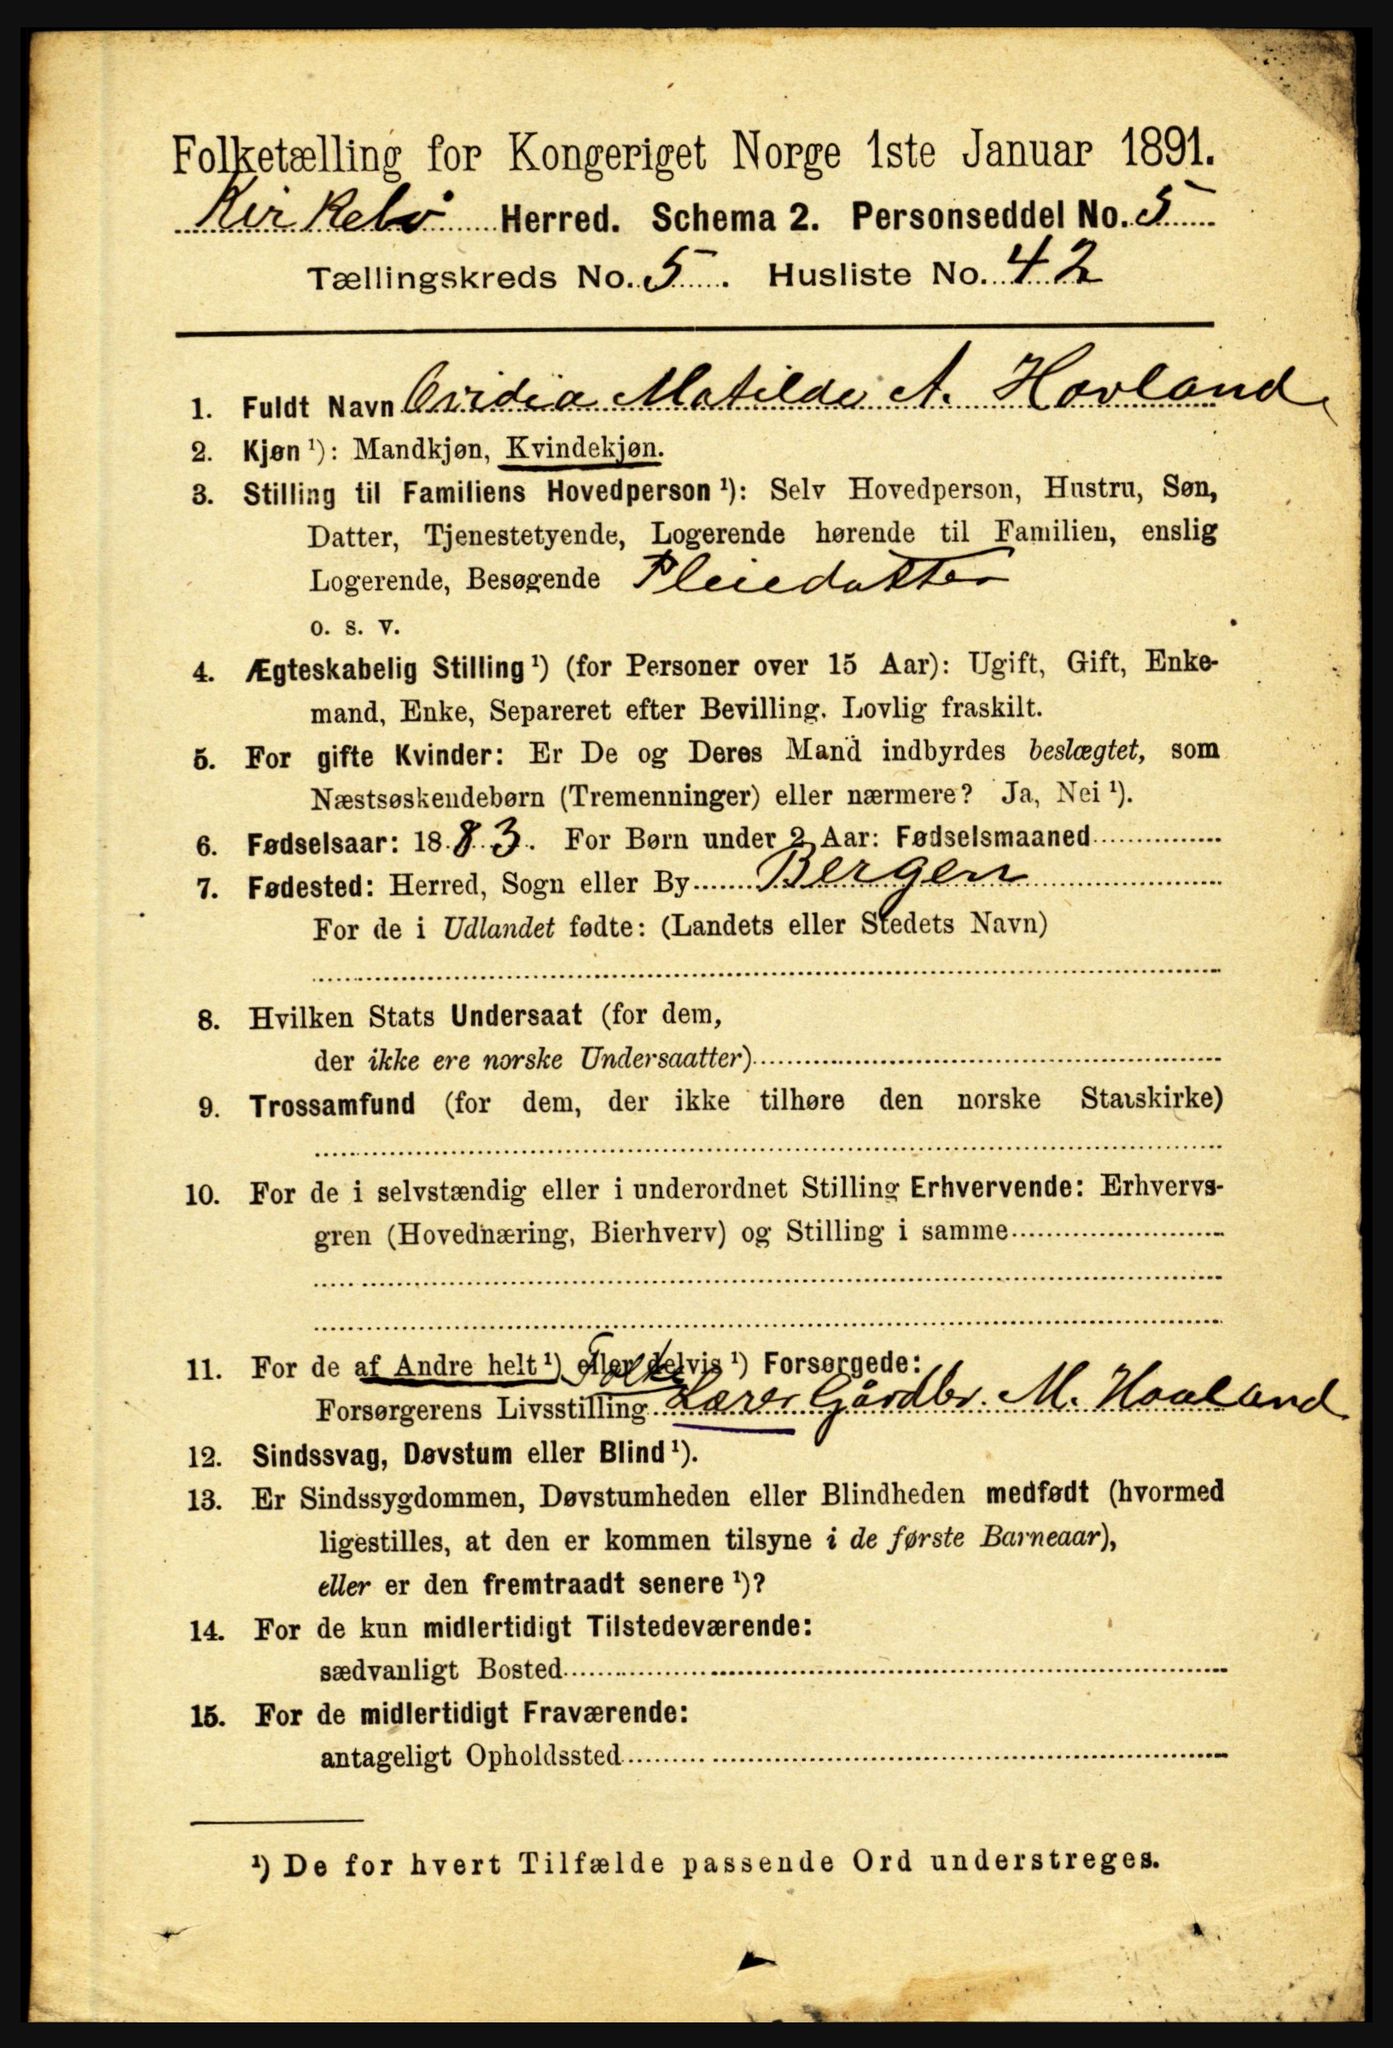 Folketælling for Kongeriget Norge 1ste Januar 1891.
Kirkebø Herred. Schema 2. Personseddel No. 5
Tællingskreds No. 5. Husliste No. 42
1. Fuldt Navn Ovidia Matilde A. Hovland
2. Kjøn ¹): Mandkjøn, Kvindekjøn.
3. Stilling til Familiens Hovedperson ¹): Selv Hovedperson, Hustru, Søn,
Datter, Tjenestetyende, Logerende hørende til Familien, enslig
Logerende, Besøgende Pleiedatter
o. s. v.
4. Ægteskabelig Stilling ¹) (for Personer over 15 Aar): Ugift, Gift, Enke-
mand, Enke, Separeret efter Bevilling. Lovlig fraskilt.
5. For gifte Kvinder: Er De og Deres Mand indbyrdes beslægtet, som
Næstsøskendebørn (Tremenninger) eller nærmere? Ja, Nei ¹).
6. Fødselsaar: 1883. For Børn under 2 Aar: Fødselsmaaned
7. Fødested: Herred, Sogn eller By Bergen
For de i Udlandet fødte: (Landets eller Stedets Navn)
8. Hvilken Stats Undersaat (for dem,
der ikke ere norske Undersaatter)
9. Trossamfund (for dem, der ikke tilhøre den norske Statskirke)
10. For de i selvstændig eller i underordnet Stilling Erhvervende: Erhvervs-
gren (Hovednæring, Bierhverv) og Stilling i samme
11. For de af Andre helt ¹) eller delvis ¹) Forsørgede:
Folke
Forsørgerens Livsstilling Lærer Gårdbr. M. Hovland
12. Sindssvag, Døvstum eller Blind ¹).
13. Er Sindssygdommen, Døvstumheden eller Blindheden medfødt (hvormed
ligestilles, at den er kommen tilsyne i de første Barneaar),
eller er den fremtraadt senere ¹)?
14. For de kun midlertidigt Tilstedeværende:
sædvanligt Bosted
15. For de midlertidigt Fraværende:
antageligt Opholdssted
¹) De for hvert Tilfælde passende Ord understreges.